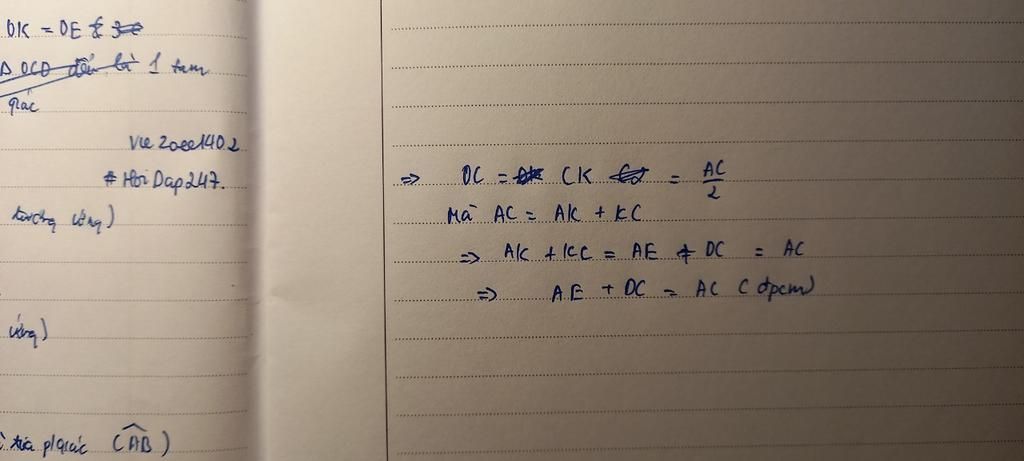 OK = OE
Δ OCD đều là 1 tam
giác
Vie2aee1402
# Hoi Dap247.
tương ứng)
ứng)
p/giác (AB)
⇒ DC = CK = AC/2
Mà AC = AK + KC
⇒ AK + KC = AE + DC = AC
⇒ AE + DC = AC (đpcm)